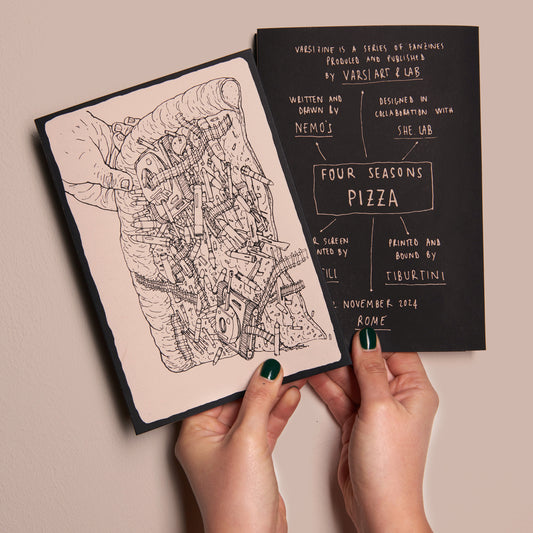 VARSIZINE IS A SERIES OF FANZINES
PRODUCED AND PUBLISHED
BY VARSI ART & LAB
WRITTEN AND
DRAWN BY
NEMO'S
DESIGNED IN
COLLABORATION WITH
SHE LAB
FOUR SEASONS
PIZZA
SCREEN
BY
PRINTED AND
BOUND BY
TIBURTINI
NOVEMBER 2024
ROME